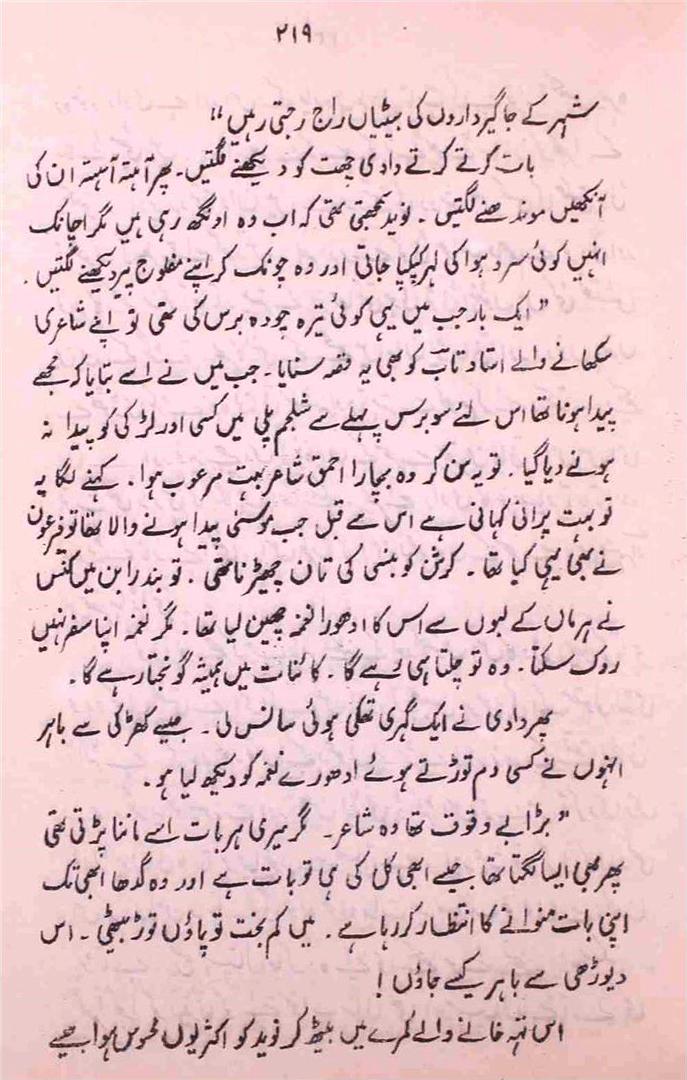 ۲۱۹
شہر کے جاگیرداروں کی بیٹیاں راج رجتی رہیں"
بات کرتے کرتے دادی چھت کو دیکھنے لگتیں۔ پھر آہستہ آہستہ ان کی
آنکھیں موندھنے لگتیں۔ نوید سمجھتی تھی کہ اب وہ اونگھ رہی ہیں مگر اچانک
انہیں کوئی سرد ہوا کی لہر کپکپا جاتی اور وہ چونک کر اپنے مفلوج پیر دیکھنے لگتیں۔
"ایک بار جب میں یہی کوئی تیرہ چودہ برس کی تھی تو اپنے شاعری
سکھانے والے استاد تابؔ کو بھی یہ قصہ سنایا۔ جب میں نے اسے بتایا کہ مجھے
پیدا ہونا تھا اس لئے سو برس پہلے سے شلجم پلی میں کسی اور لڑکی کو پیدا نہ
ہونے دیا گیا۔ تو یہ سن کر وہ بچارا احمق شاعر بہت مرعوب ہوا۔ کہنے لگا یہ
تو بہت پرانی کہانی ہے اس سے قبل جب موسٰی پیدا ہونے والا تھا تو فرعون
نے بھی یہی کیا تھا۔ کرشن کو بنسی کی تان چھیڑنا تھی۔ تو بندرابن میں کنس
نے ہر ماں کے لبوں سے اس کا ادھورا نغمہ چھین لیا تھا۔ مگر نغمہ اپنا سفر نہیں
روک سکتا۔ وہ تو چلتا ہی رہے گا۔ کائنات میں ہمیشہ گونجتا رہے گا۔
پھر دادی نے ایک گہری تھکی ہوئی سانس لی۔ جیسے کھڑکی سے باہر
انہوں نے کسی دم توڑتے ہوئے ادھورے نغمہ کو دیکھ لیا ہو۔
"بڑا بے وقوف تھا وہ شاعر۔ مگر میری ہر بات اسے ماننا پڑتی تھی
پھر بھی ایسا لگتا تھا جیسے ابھی کل کی ہی تو بات ہے اور وہ گدھا ابھی تک
اپنی بات منوانے کا انتظار کر رہا ہے۔ میں کم بخت تو پاؤں توڑ بیٹھی۔ اس
دیوڑھی سے باہر کیسے جاؤں!
اس تہہ خانے والے کمرے میں بیٹھ کر نوید کو اکثر یوں محسوس ہوا جیسے